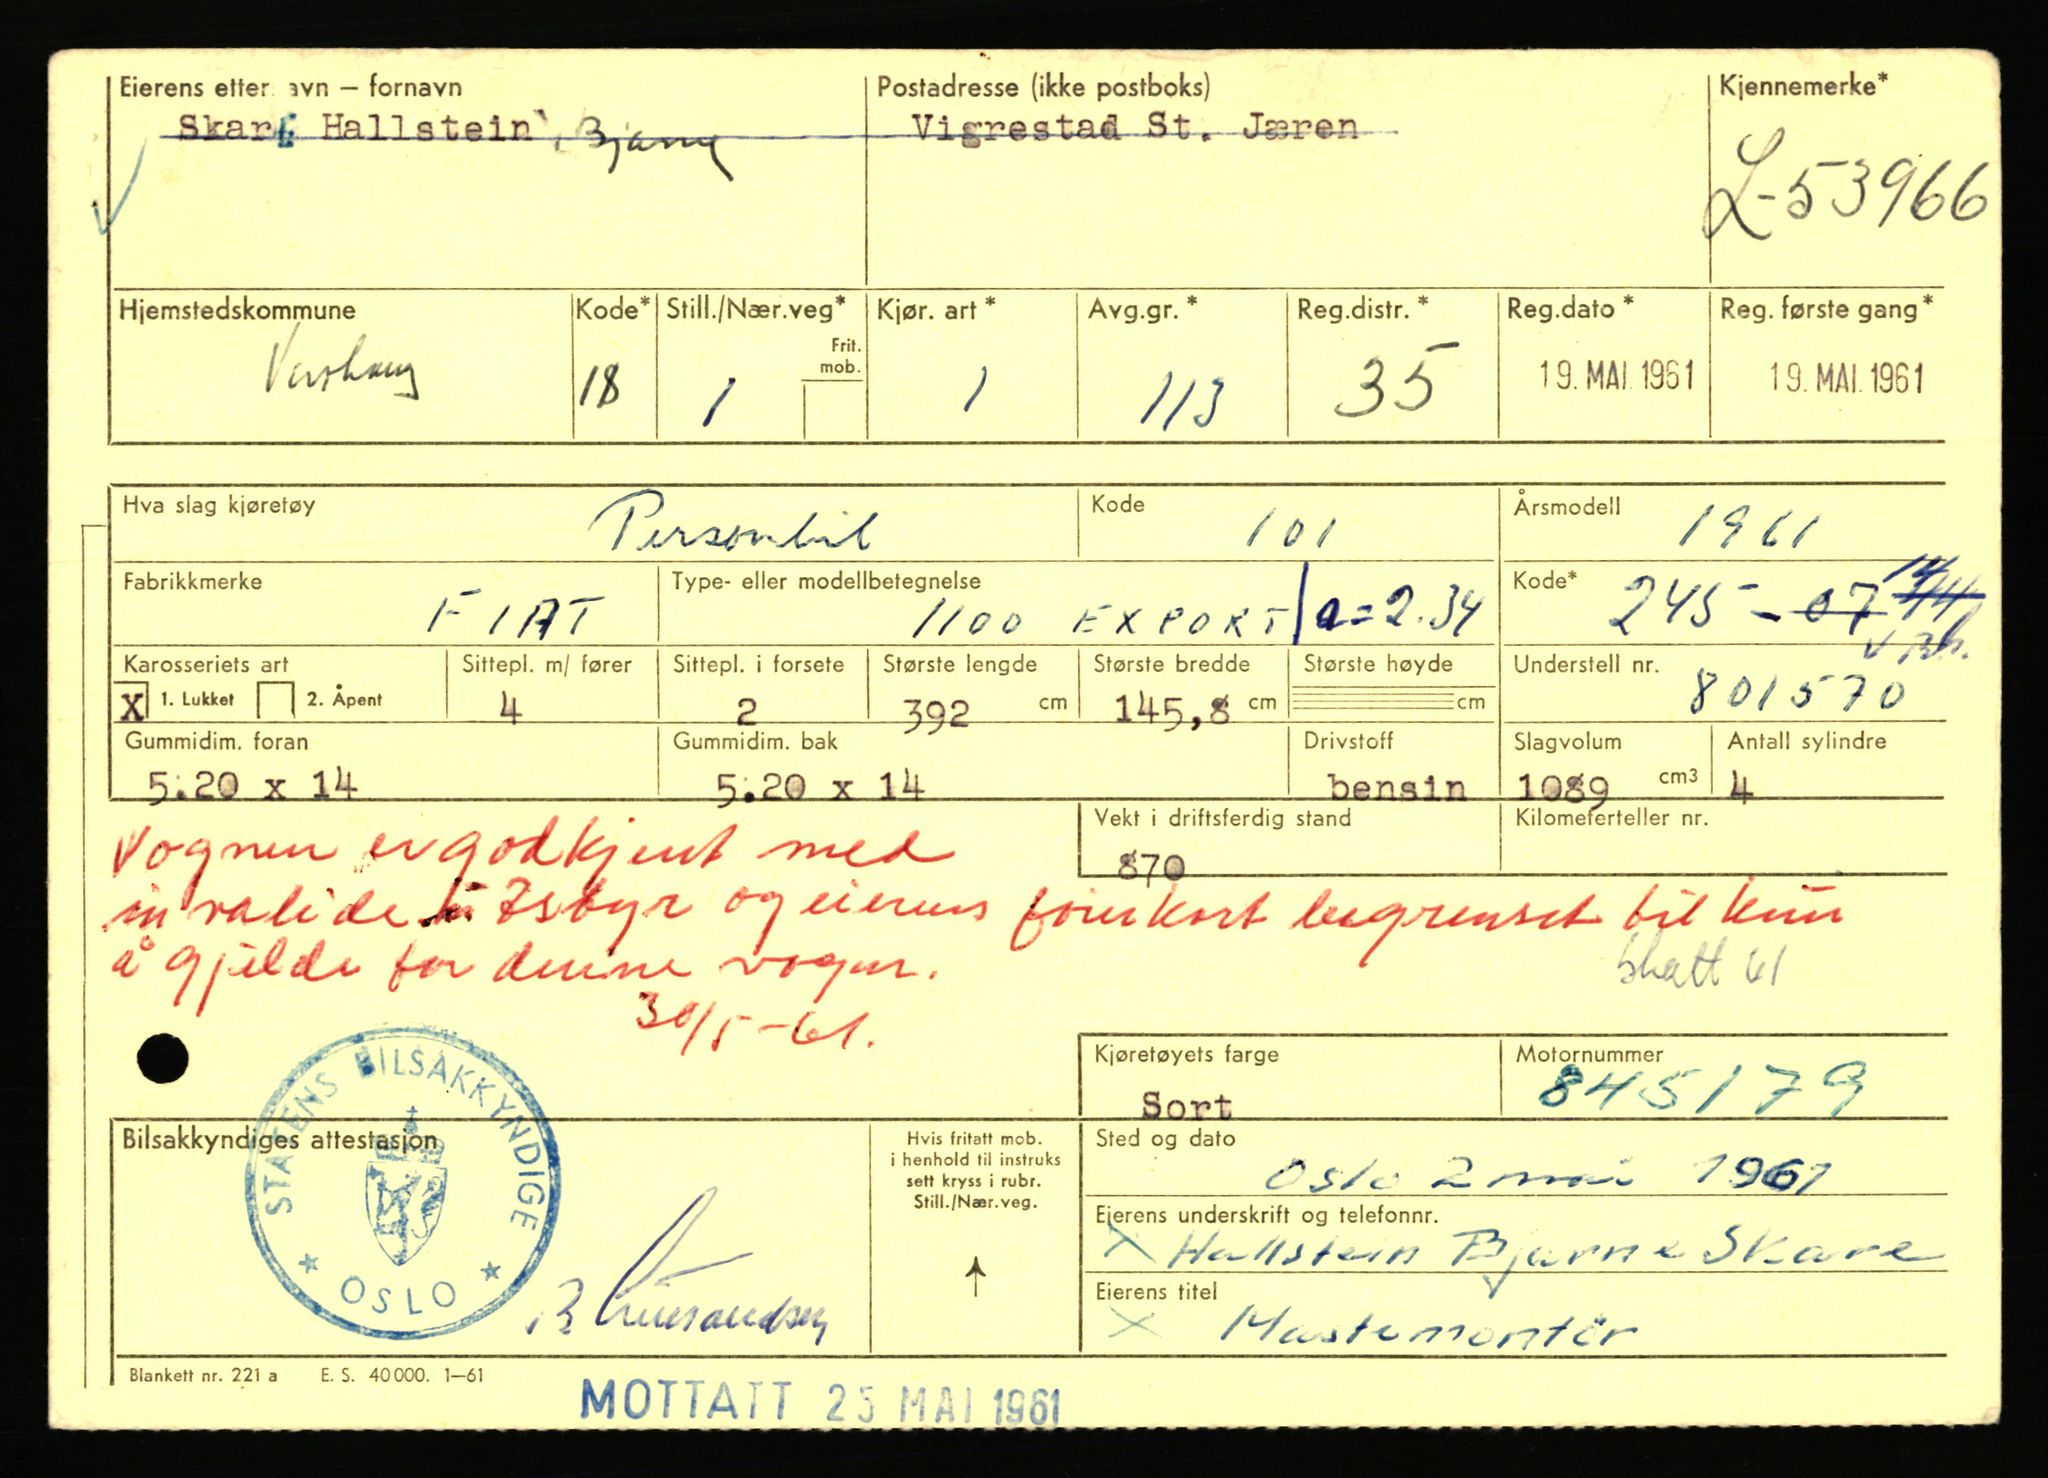 Eierens etter avn – fornavn
Skare Hallstein, Bjarne
Postadresse (ikke postboks)
Vigrestad St. Jæren
Kjennemerke*
L-53966
Hjemstedskommune
Varhaug
Kode*
18
Still./Nær.veg*
Frit. mob.
1
Kjør. art*
1
Avg.gr.*
113
Reg.distr.*
35
Reg.dato*
19. MAI 1961
Reg. første gang*
19. MAI 1961
Hva slag kjøretøy
Personbil
Kode
101
Årsmodell
1961
Fabrikkmerke
FIAT
Type- eller modellbetegnelse
1100 EXPORT / a=2.34
Kode*
245-07
Karosseriets art
X 1. Lukket 2. Åpent
Sittepl. m/ fører
4
Sittepl. i forsete
2
Største lengde
392 cm
Største bredde
145,8 cm
Største høyde
cm
Understell nr.
801570
Gummidim. foran
5.20 x 14
Gummidim. bak
5.20 x 14
Drivstoff
bensin
Slagvolum
1089 cm3
Antall sylindre
4
Vekt i driftsferdig stand
870
Kilometerteller nr.
Vognen er godkjent med
invalide utstyr og eierens førerkort begrenset til kun
å gjelde for denne vogn.
skatt 61
30/5-61.
Kjøretøyets farge
Sort
Motornummer
845179
Bilsakkyndiges attestasjon
STATENS BILSAKKYNDIGE
★ OSLO ★
Hvis fritatt mob.
i henhold til instruks
sett kryss i rubr.
Still./Nær.veg.
Sted og dato
Oslo 2 mai 1961
Eierens underskrift og telefonnr.
X Hallstein Bjarne Skare
Eierens titel
X Mastemontör
Blankett nr. 221 a E. S. 40 000. 1–61
MOTTATT 25 MAI 1961